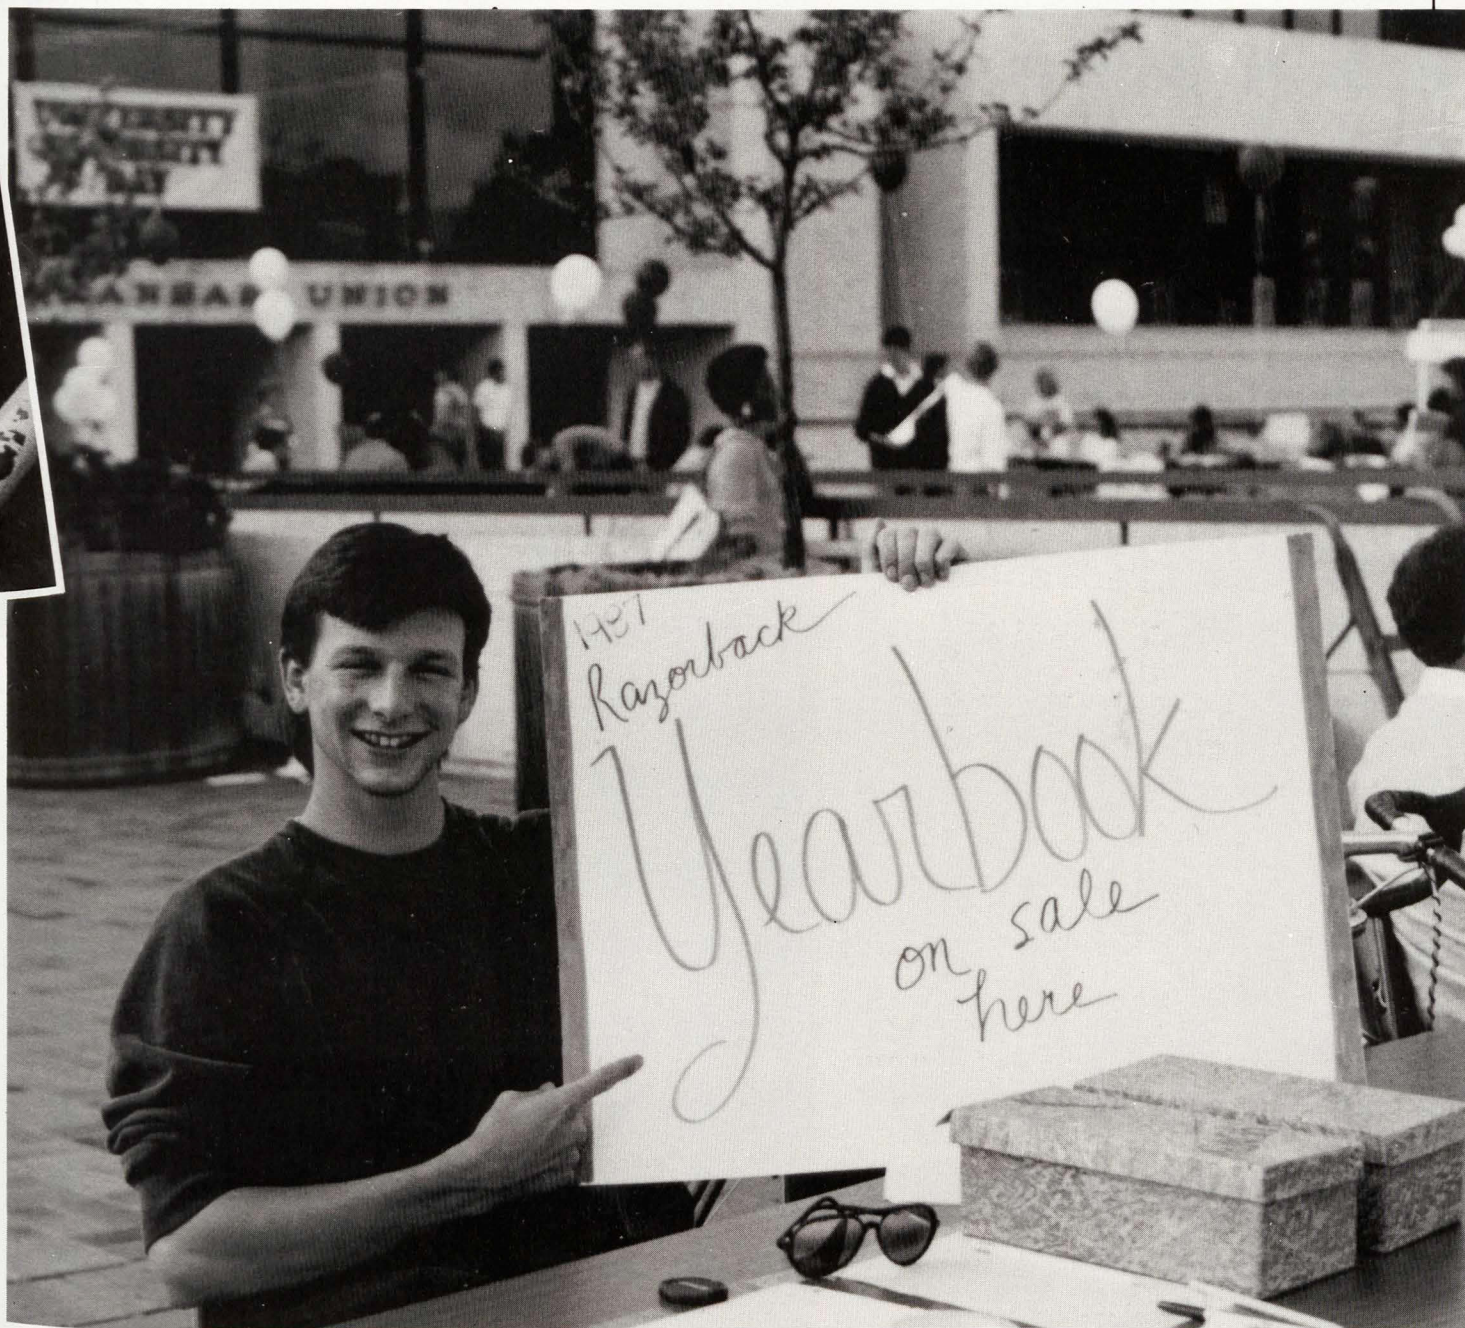 UNION
1987
Razorback
Yearbook
on sale
here